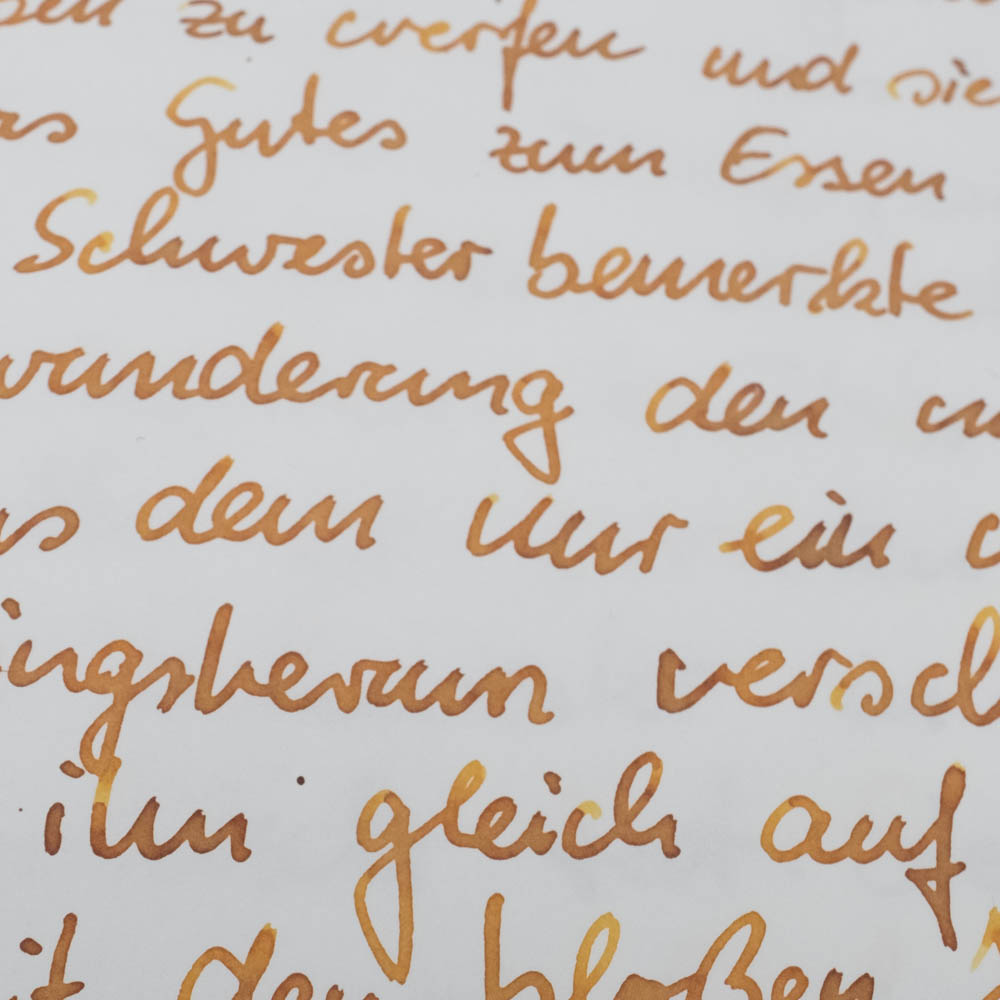 zu werfen und sie
Gutes zum Essen
Schwester bemerkte
wanderung den
dem nur ein
ingsherum versch
ihn gleich auf
it den bloßen